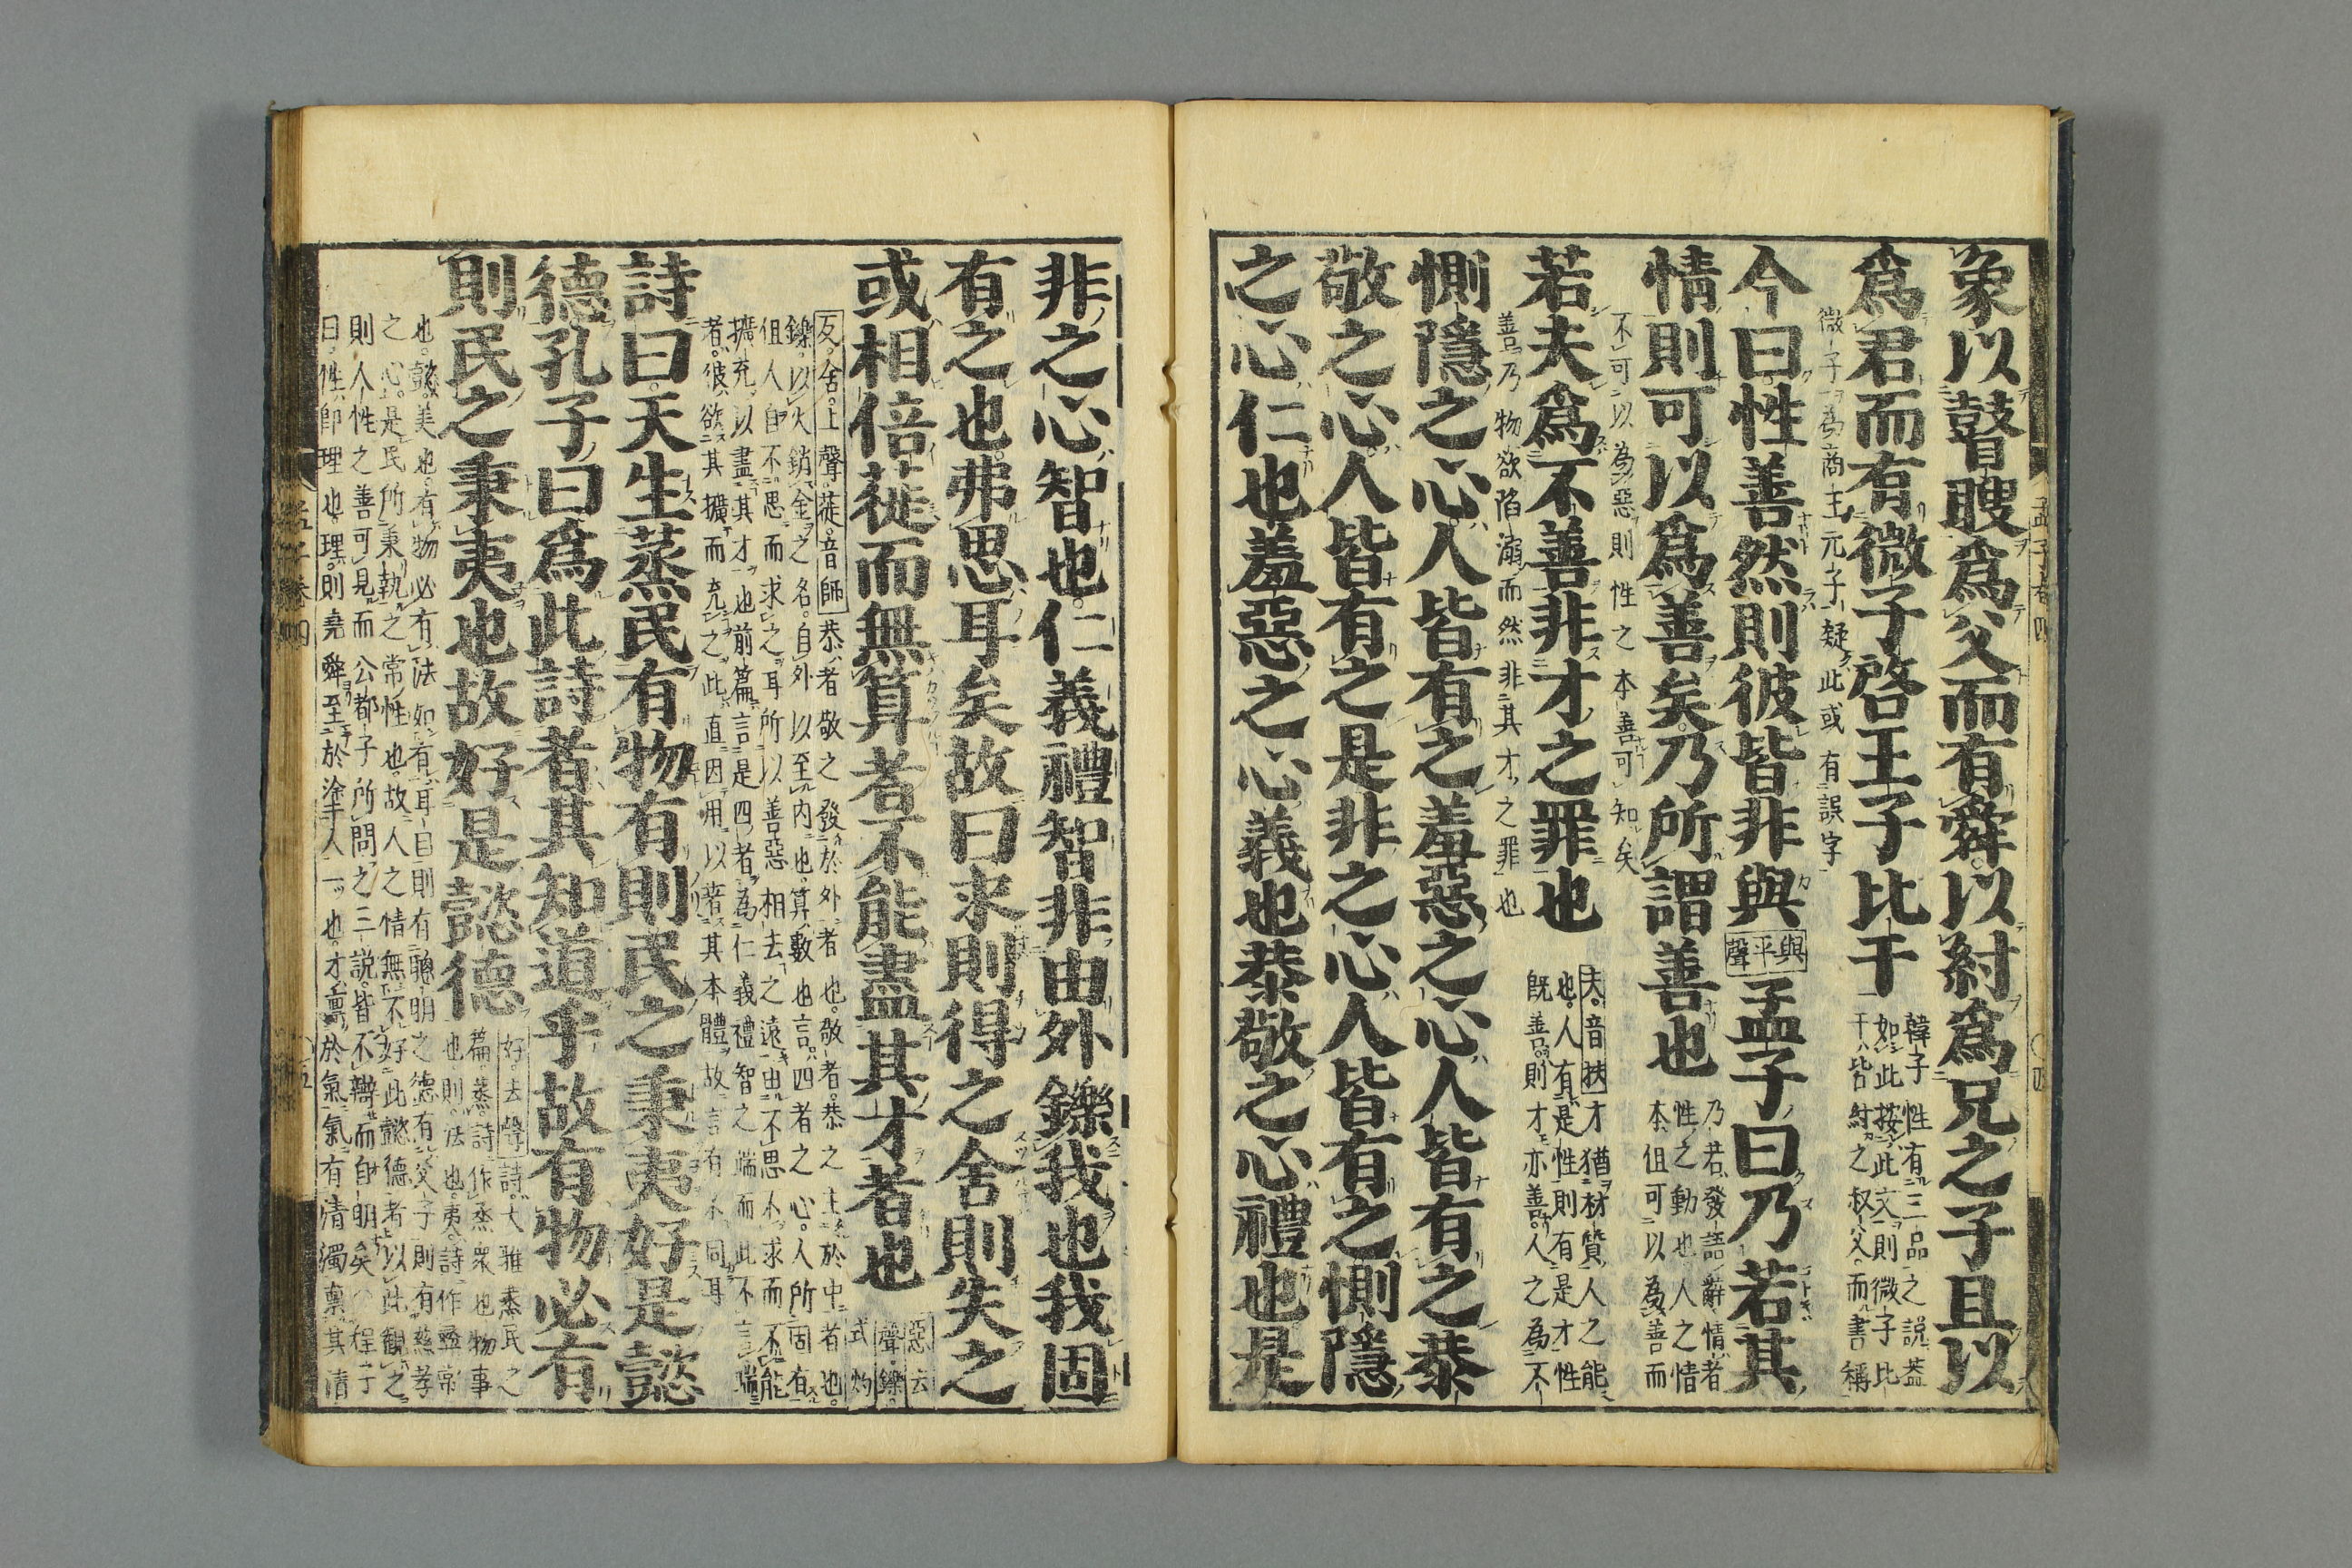 象以瞽瞍爲父而有舜以紂爲兄之子且以
爲君而有微子啓王子比干
韓子性有三品之説蓋
如此按此文則微子比
干皆紂之叔父而書稱
微子爲商王元子疑此或有誤字
今曰性善然則彼皆非與
與平聲
孟子曰乃若其
情則可以爲善矣乃所謂善也
乃若發語辭情者
性之動也人之情
本但可以為善而
不可以為惡則性之本善可知矣
若夫爲不善非才之罪也
夫音扶才猶材質人之能
也人有是性則有是才性
既善則才亦善人之為不
善乃物欲陷溺而然非其才之罪也
惻隱之心人皆有之羞惡之心人皆有之恭
敬之心人皆有之是非之心人皆有之惻隱
之心仁也羞惡之心義也恭敬之心禮也是
非之心智也仁義禮智非由外鑠我也我固
有之也弗思耳矣故曰求則得之舍則失之
或相倍蓰而無算者不能盡其才者也
惡去
聲鑠
式灼
反舍上聲蓰音師恭者敬之發於外者也敬者恭之主於中者也
鑠以火銷金之名自外以至内也算數也言四者之心人所固有
但人自不思而求之耳所以善惡相去之遠由不思不求而不能
擴充以盡其才也前篇言是四者為仁義禮智之端而此不言端
者彼欲其擴而充之此直因用以著其本體故言有不同耳
詩曰天生蒸民有物有則民之秉夷好是懿
德孔子曰爲此詩者其知道乎故有物必有
則民之秉夷也故好是懿德
好去聲詩大雅蒸民之
篇蒸詩作烝衆也物事
也則法也夷詩作彝常
也懿美也有物必有法如有耳目則有聰明之德有父子則有慈孝
之心是民所秉執之常性也故人之情無不好此懿德者以此觀之
則人性之善可見而公都子所問之三説皆不辯而自明矣○程子
曰性即理也理則堯舜至於塗人一也才禀於氣氣有清濁禀其清
孟子卷四
○四
孟子卷四
○五